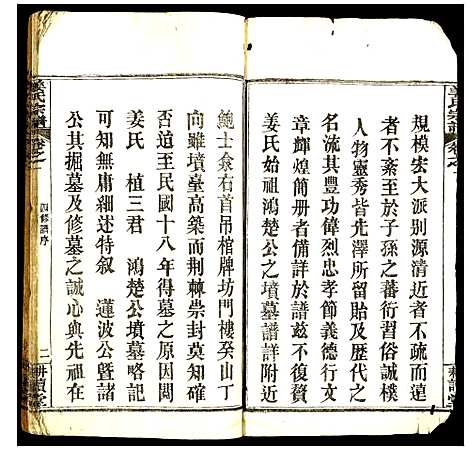 規模宏大派別源清近者不疏而遠
者不紊至於子孫之蕃衍習俗誠樸
人物靈秀皆先澤所留貽及歷代之
名流其豐功偉烈忠孝節義德行文
章輝煌簡册者備詳於譜茲不復贅
姜氏始祖鴻楚公之墳墓譜詳附近
鮑士侖右首吊棺牌坊門樓癸山丁
向雖墳臺高築而荆棘崇封莫知確
否迨至民國十八年得墓之原因閱
姜氏 植三君 鴻楚公墳墓略記
可知無庸細述特叙 蓮波公暨諸
公其掘墓及修墓之誠心與先祖在
姜氏宗譜
卷之一
四修譜序
二